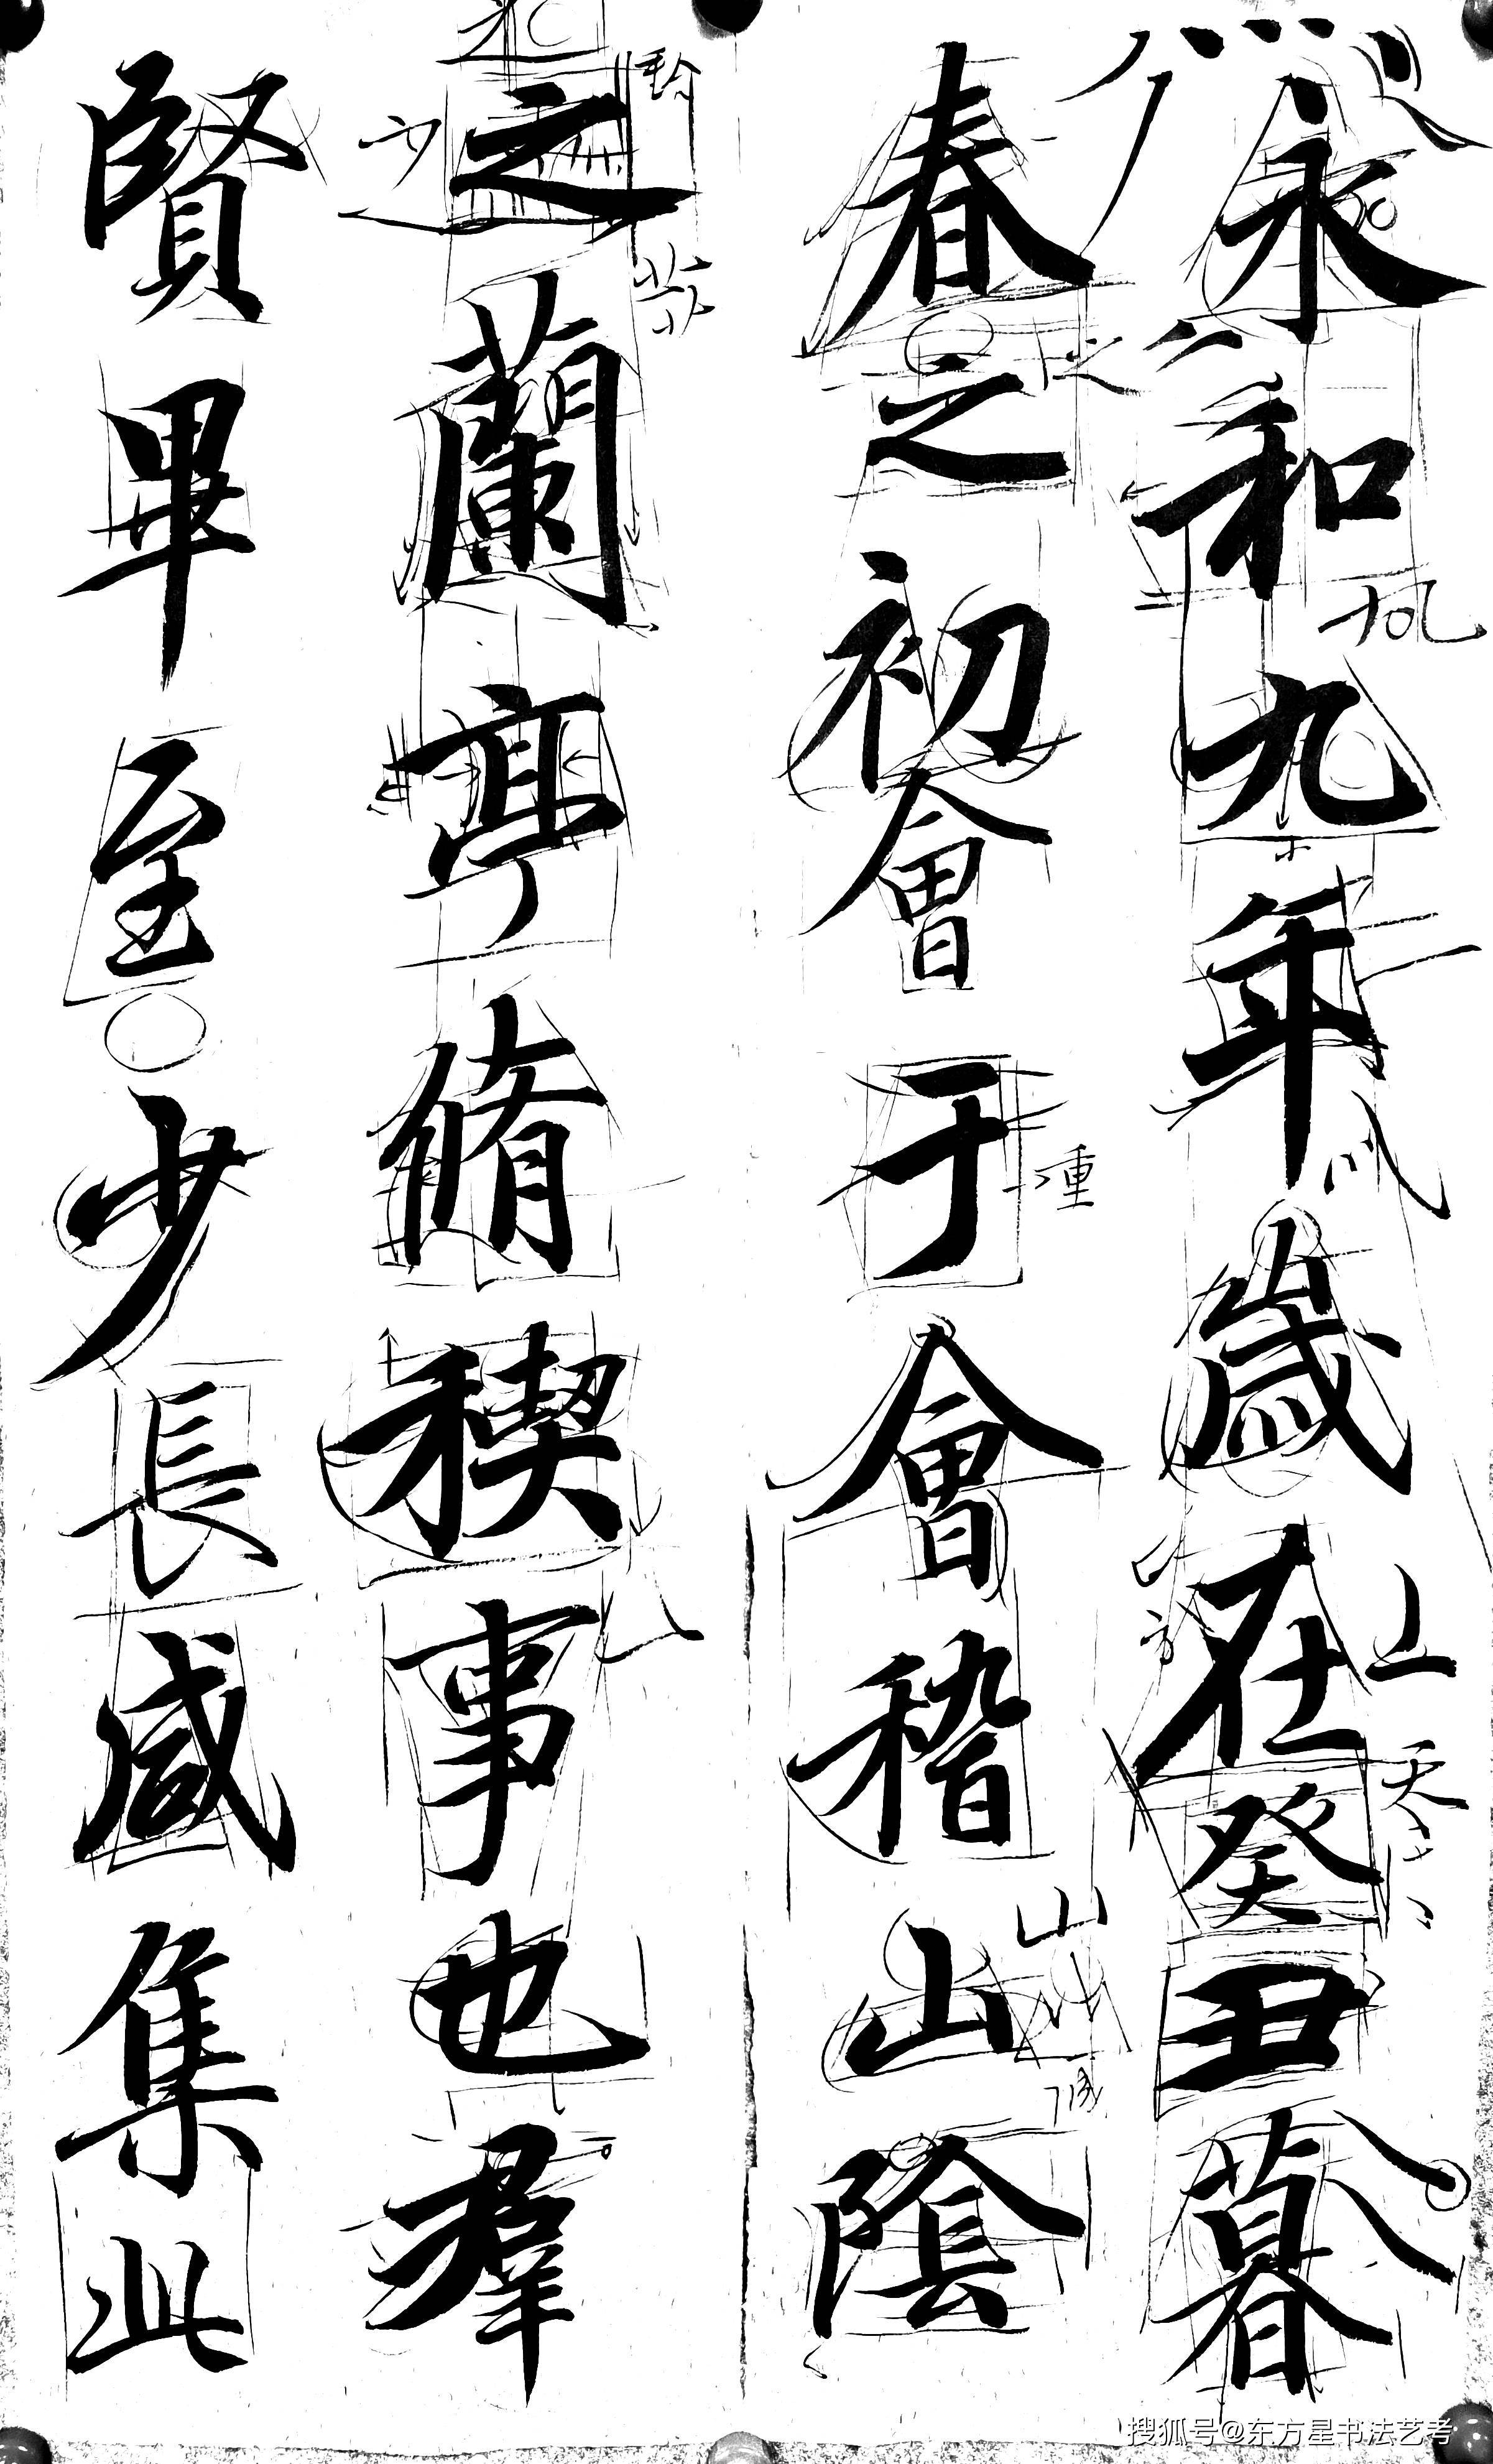 永和九年歲在癸丑暮
春之初會于會稽山陰
之蘭亭脩稧事也羣
賢畢至少長咸集此
重
山
搜狐号@东方星书法艺考